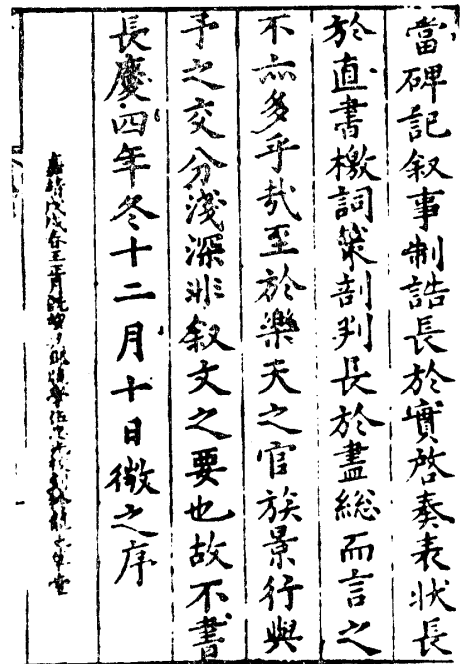 當碑記叙事制誥長於實啓奏表狀長
於直書檄詞策剖判長於盡総而言之
不亦多乎哉至於樂天之官族景行與
予之交分淺深非叙文之要也故不書
長慶四年冬十二月十日微之序
嘉靖戊戌春王正月